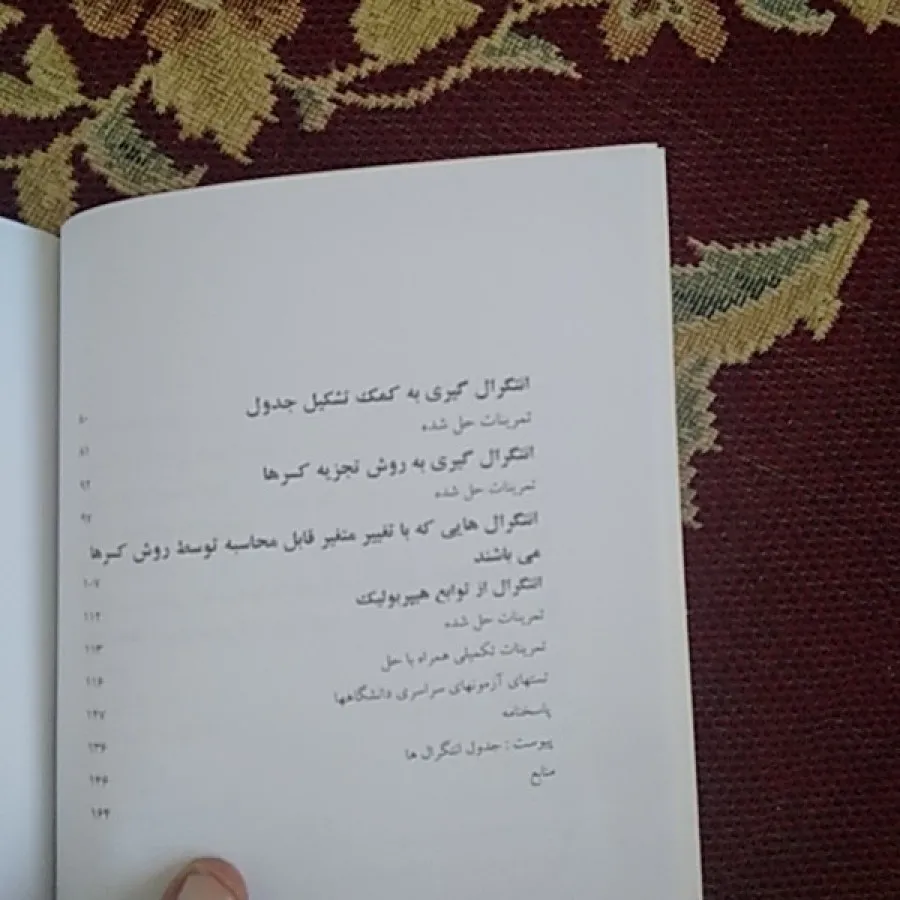 انتگرال گیری به کمک تشکیل جدول ۸۰
تمرینات حل شده ۸۱
انتگرال گیری به روش تجزیه کسرها ۹۲
تمرینات حل شده ۹۷
انتگرال هایی که با تغییر متغیر قابل محاسبه توسط روش کسرها
می باشند ۱۰۷
انتگرال از توابع هیپربولیک ۱۱۲
تمرینات حل شده ۱۱۳
تمرینات تکمیلی همراه با حل ۱۱۶
تستهای آزمونهای سراسری دانشگاهها ۱۲۷
پاسخنامه ۱۳۶
پیوست : جدول انتگرال ها ۱۴۶
منابع ۱۶۴